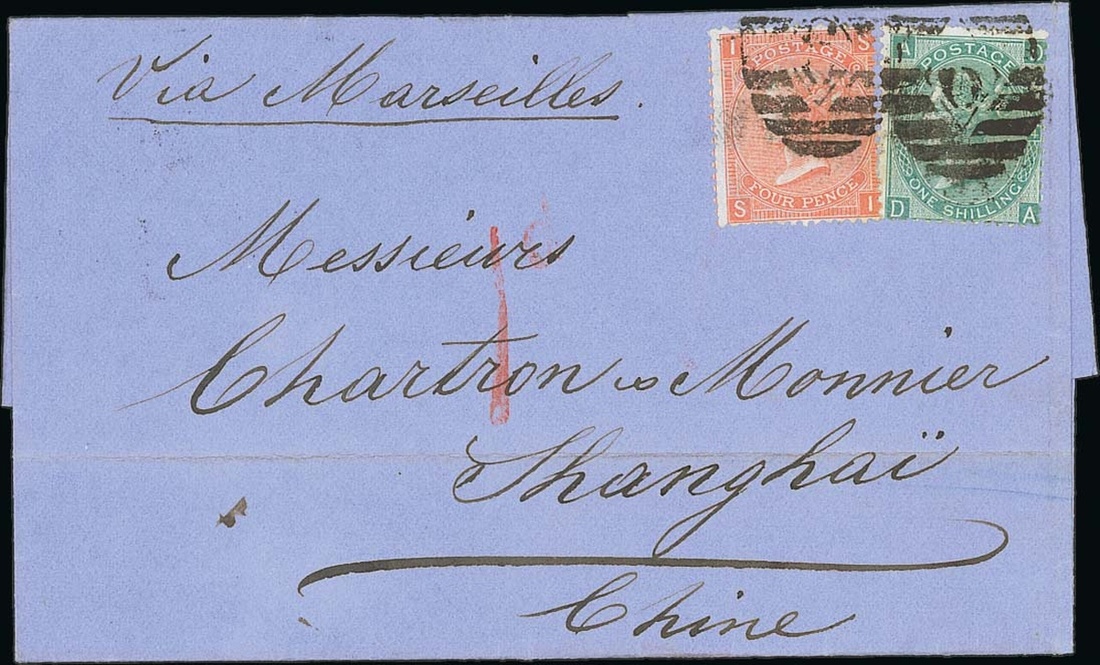 Via Marseilles.
I S
POSTAGE
FOUR PENCE
S I
A D
POSTAGE
ONE SHILLING
D A
Messieurs
Chartron & Monnier
Shanghaï
Chine